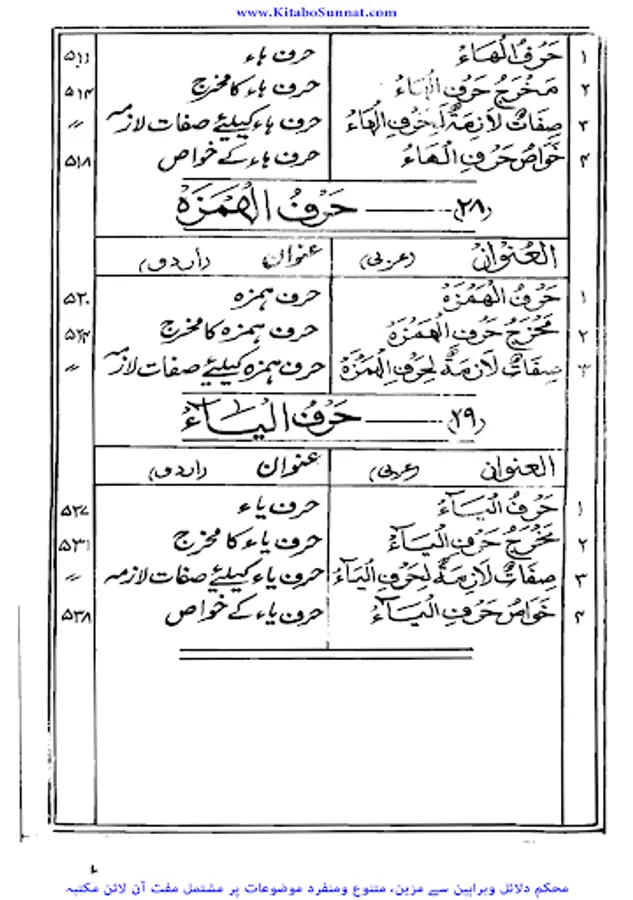 www.KitaboSunnat.com
۱ حَرْفُ الْهَاءِ حرف ہاء ۵۱۱
۲ مَخْرَجُ حَرْفِ الْهَاءِ حرف ہاء کا مخرج
۳ صِفَاتٌ لَازِمَةٌ لِحَرْفِ الْهَاءِ حرف ہاء کیلئے صفات لازمہ 〃
۴ خَوَاصُ حَرْفِ الْهَاءِ حرف ہاء کے خواص ۵۱۸
(۲۸) ـــــ حَرْفُ الْهَمْزَه
العُنْوَانُ (عربی) عنوان (اردو)
۱ حَرْفُ الْهَمْزَهْ حرف ہمزہ ۵۲۰
۲ مَخْرَجُ حَرْفِ الْهَمْزَهْ حرف ہمزہ کا مخرج
۳ صِفَاتٌ لَازِمَةٌ لِحَرْفِ الْهَمْزَهْ حرف ہمزہ کیلئے صفات لازمہ 〃
(۲۹) ـــــ حَرْفُ الْيَاءِ
العنوان (عربی) عنوان (اردو)
۱ حَرْفُ الْيَآءِ حرف یاء
۲ مَخْرَجُ حَرْفِ الْيَآءِ حرف یاء کا مخرج ۵۳۱
۳ صِفَاتٌ لَازِمَةٌ لِحَرْفِ الْيَآءِ حرف یاء کیلئے صفات لازمہ 〃
۴ خَوَاصُ حَرْفِ الْيَآءِ حرف یاء کے خواص ۵۳۸
محکم دلائل وبراہین سے مزین، متنوع ومنفرد موضوعات پر مشتمل مفت آن لائن مکتبہ